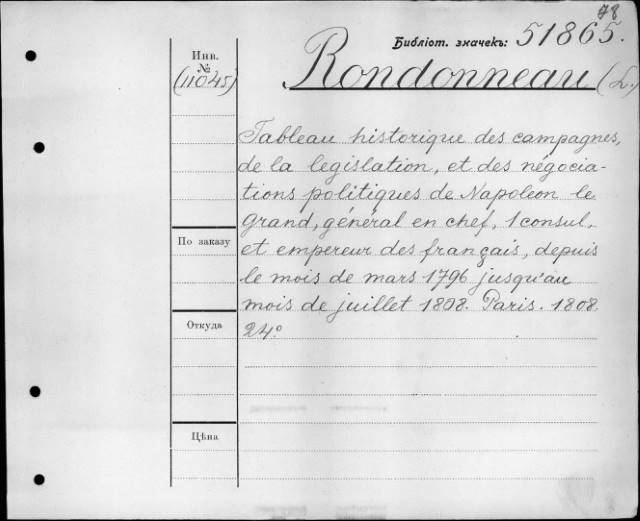 78
Библіот. значекъ: 51865.
Инв.
№
(11045)
Rondonneau (L.)
Tableau historique des campagnes,
de la legislation, et des négocia-
tions politiques de Napoleon le
grand, général en chef, 1 consul,
et empereur des français, depuis
le mois de mars 1796 jusqu'au
mois de juillet 1808. Paris. 1808.
24°
По заказу
Откуда
Цѣна